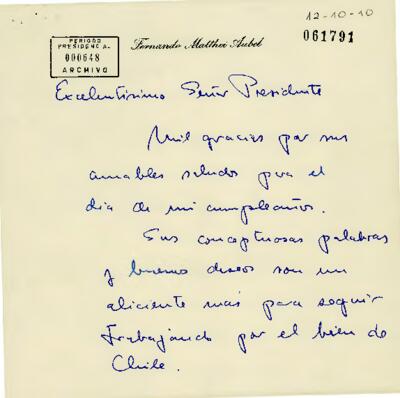 12-10-10
PERIODO
PRESIDENCIA
000648
ARCHIVO
Fernando Matthei Aubel
061791
Excelentísimo Señor Presidente
Mil gracias por sus
amables saludos para el
día de mi cumpleaños.
Sus conceptuosas palabras
y buenos deseos son un
aliciente más para seguir
trabajando por el bien de
Chile.